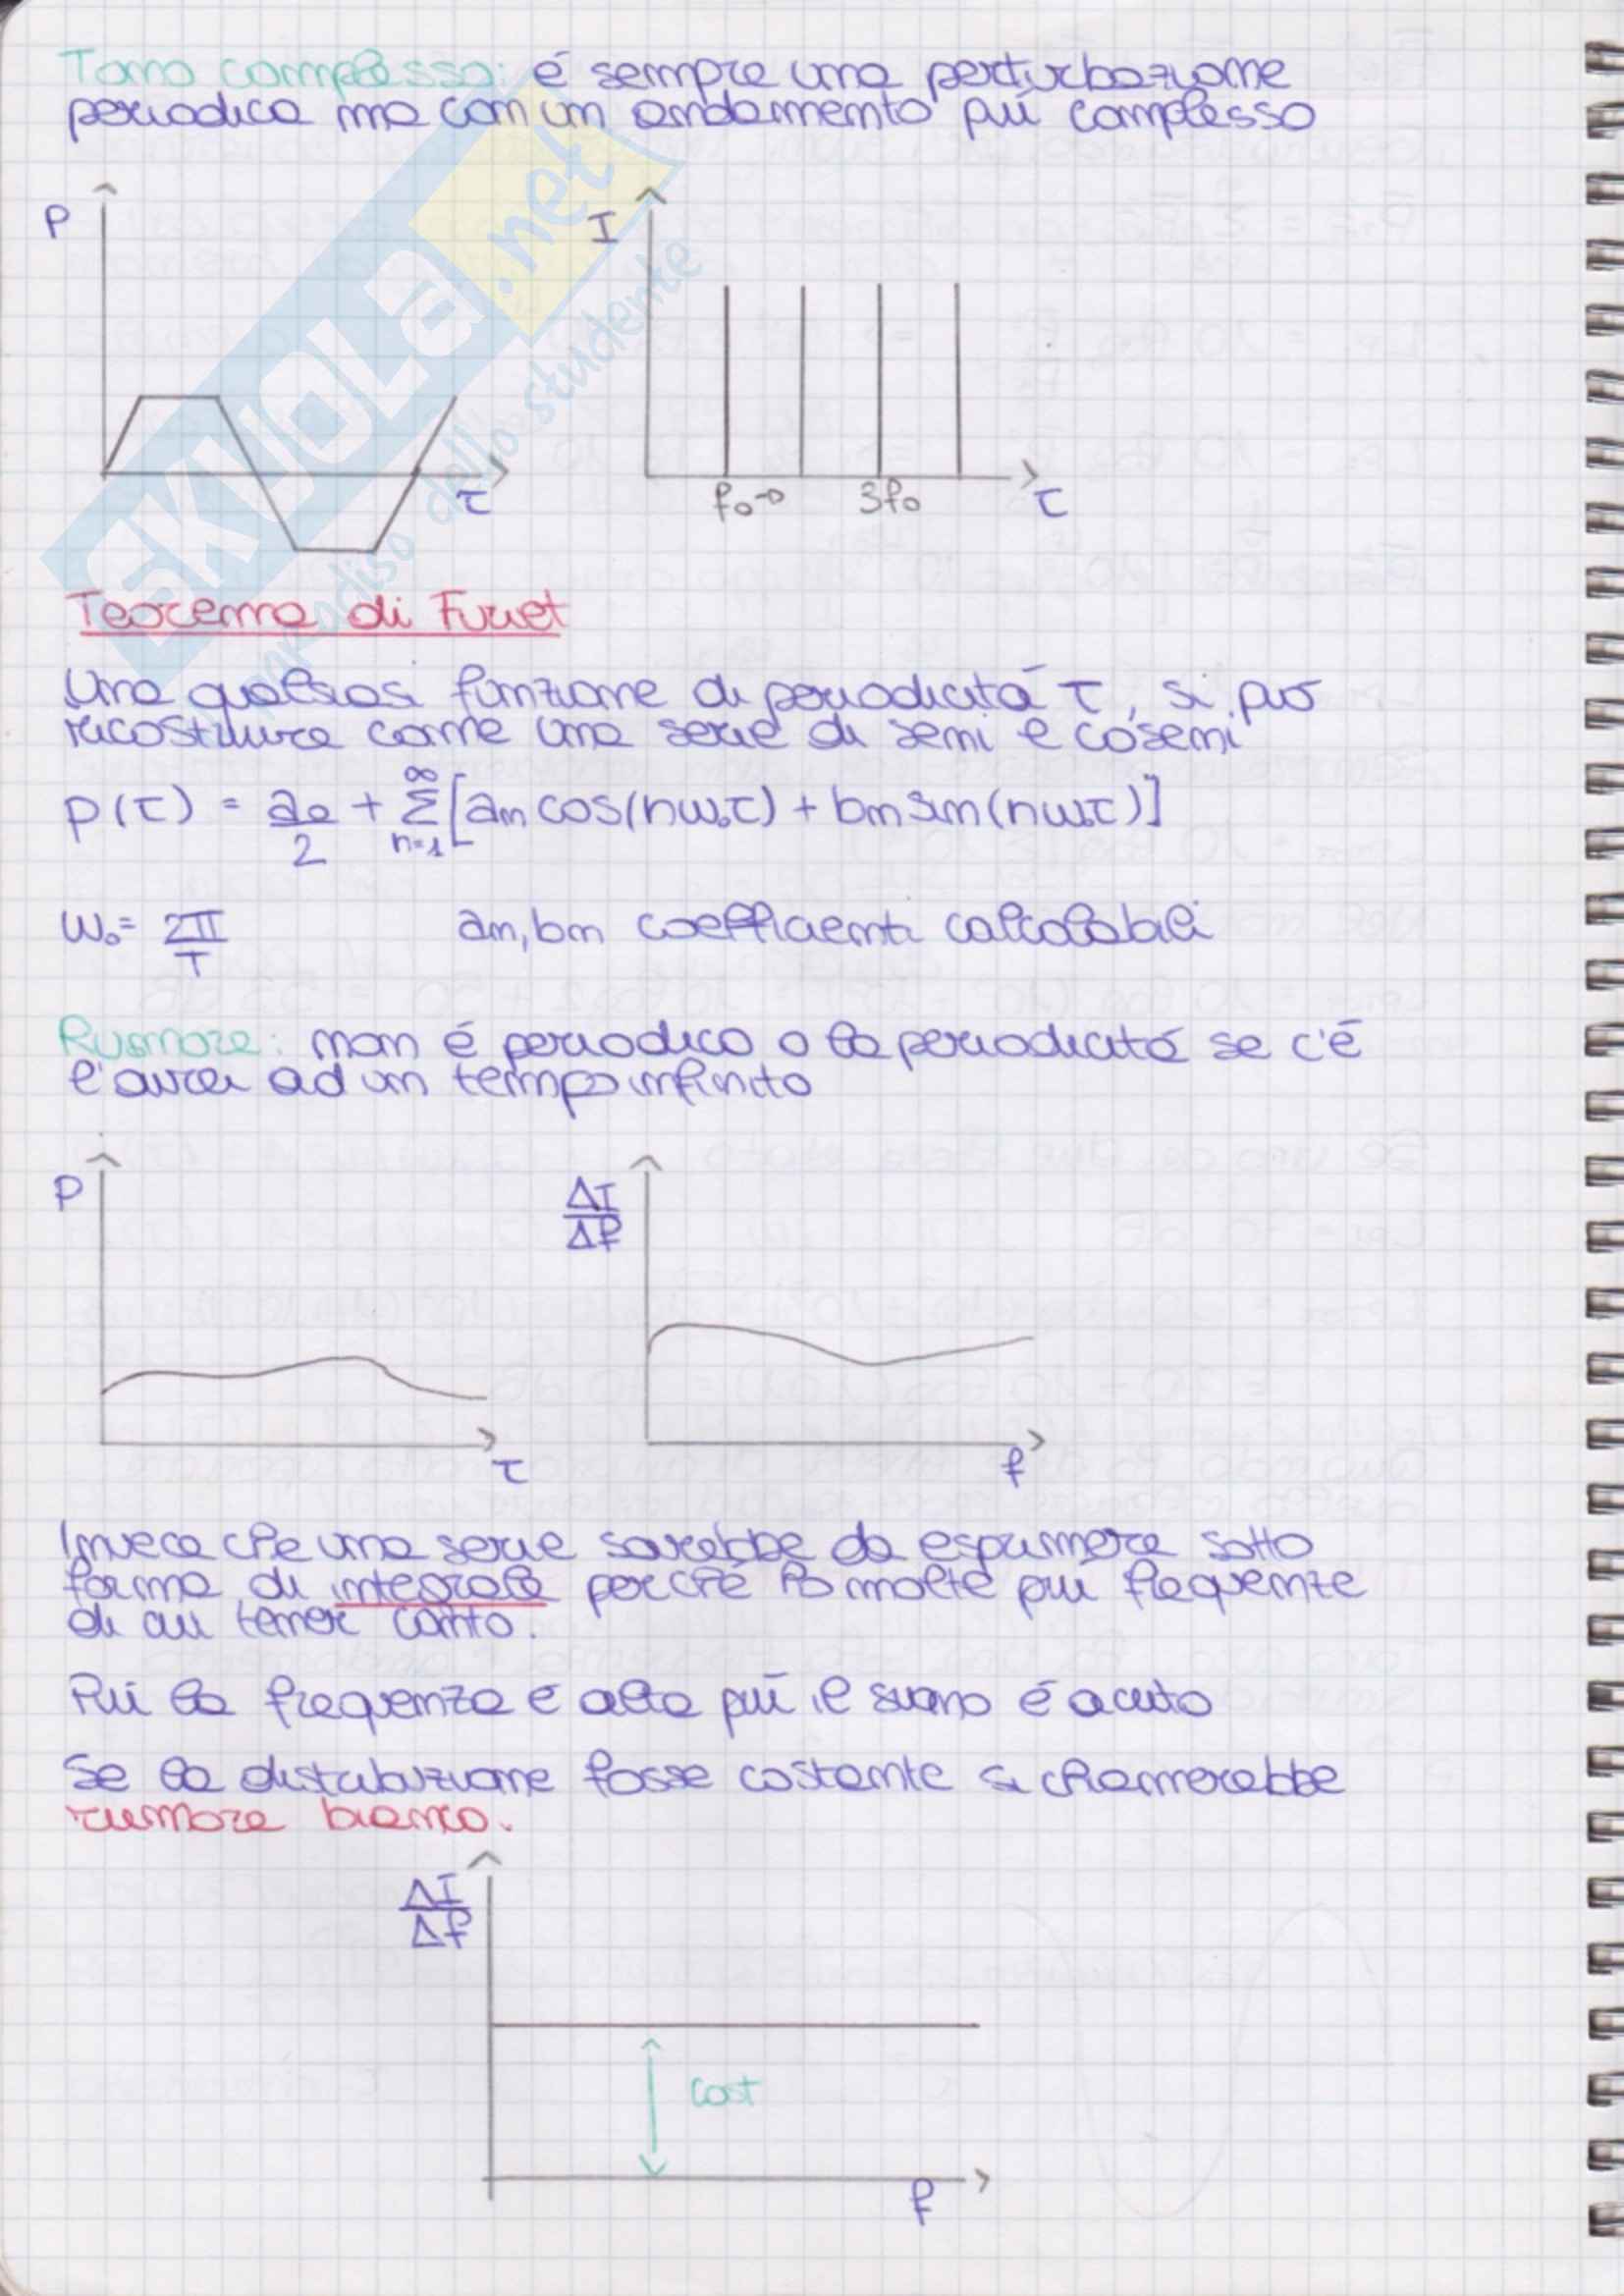 Tono complesso: é sempre una perturbazione
periodica ma con un andamento piú complesso
P
τ
I
f₀→
3f₀
τ
SKUOLA.net
paradiso dello studente
Teorema di Furiet
Una qualsiasi funzione di periodicitá τ, si puo
ricostruire come una serie di seni e coseni
p(τ) = a₀/2 + Σ n=1 ∞ [an cos(nω₀τ) + bn sin(nω₀τ)]
ω₀= 2π/T an, bn coefficienti calcolabili
Rumore: non é periodico o la periodicitá se c'é
l'avrei ad un tempo infinito
P
τ
ΔI/Δf
f
Invece che una serie sarebbe da esprimere sotto
forma di integrale perché ho molte piu frequenze
di cui tener conto.
Piú la frequenza é alta piú il suono é acuto
Se la distribuzione fosse costante si chiamerebbe
rumore bianco.
ΔI/Δf
cost
f